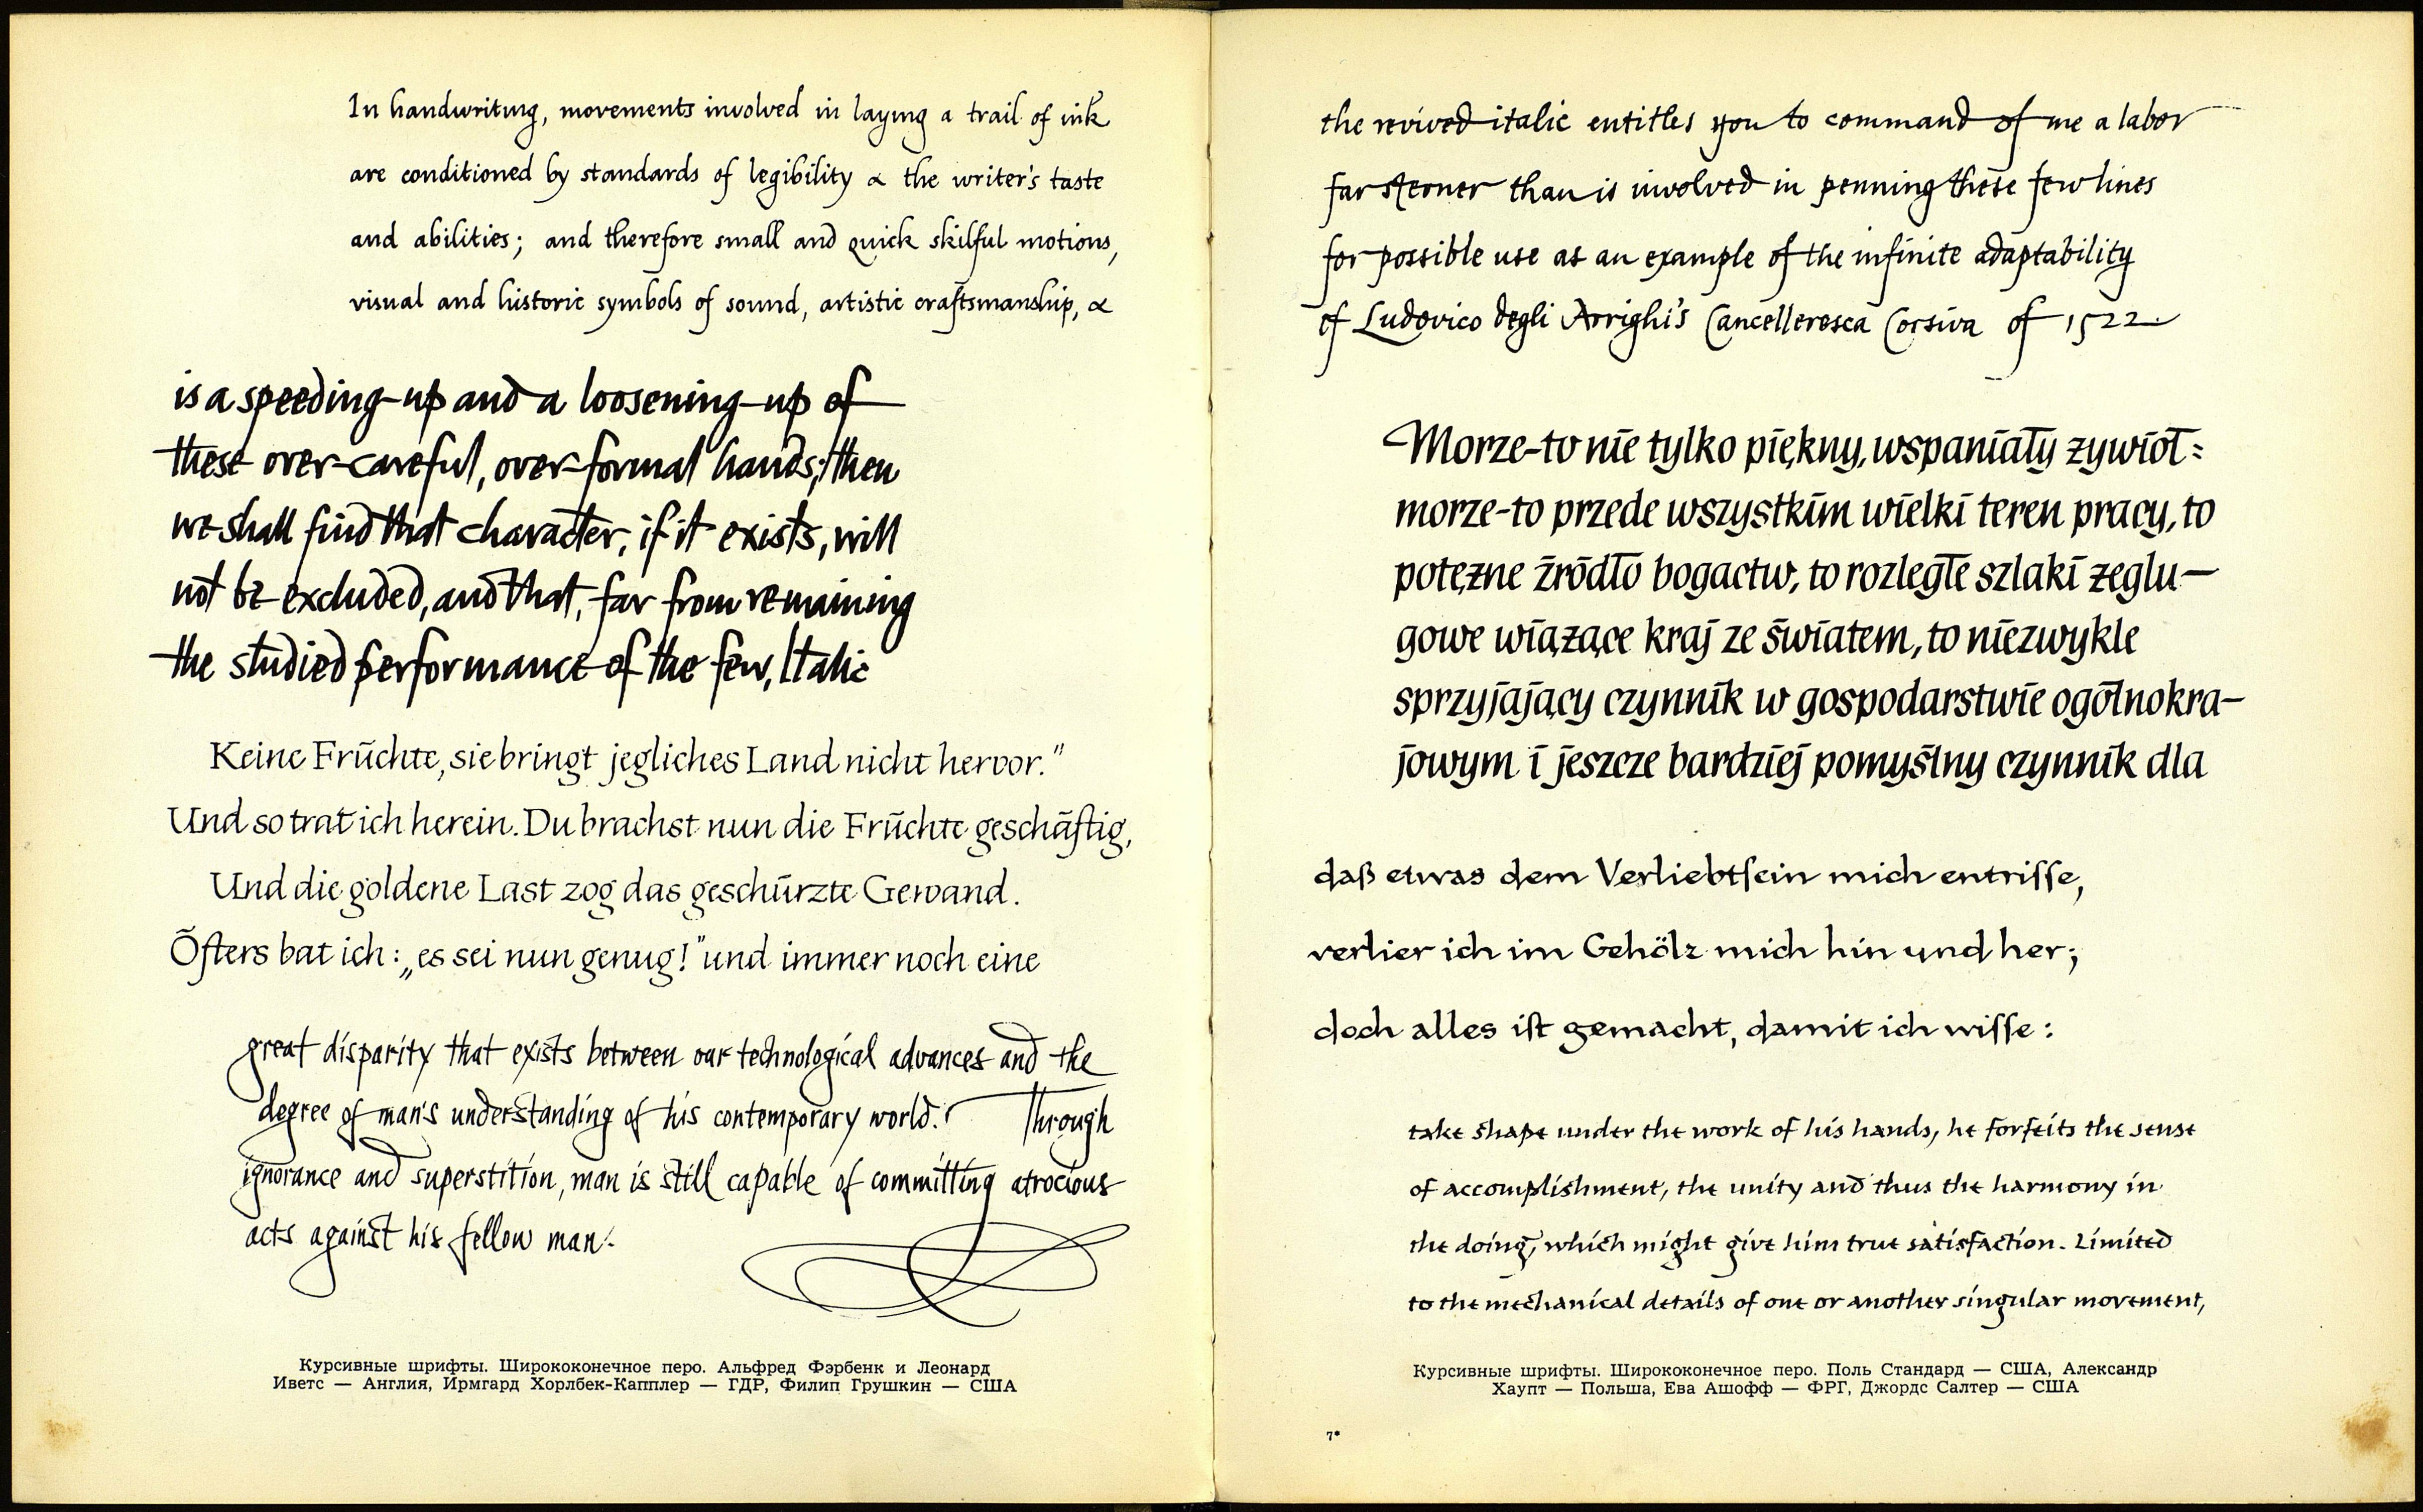 In handwriting, movements involved in laying a trail of ink
are conditioned by standards of legibility & the writer's taste
and abilities; and therefore small and quick skilful motions,
visual and historic symbols of sound, artistic craftsmanship, &
is a speeding-up and a loosening-up of
these over-careful, over-formal hands; then
we shall find that character, if it exists, will
not be excluded, and that, far from remaining
the studied performance of the few, Italic
Keine Früchte, sie bringt jegliches Land nicht hervor."
Und so trat ich herein. Du brachst nun die Früchte geschäftig,
Und die goldene Last zog das geschürzte Gewand.
Öfters bat ich: „es sei nun genug!" und immer noch eine
great disparity that exists between our technological advances and the
degree of man's understanding of his contemporary world. Through
ignorance and superstition, man is still capable of committing atrocious
acts against his fellow man.
Курсивные шрифты. Ширококонечное перо. Альфред Фэрбенк и Леонард
Иветс — Англия, Ирмгард Хорлбек-Капплер — ГДР, Филип Грушкин — США
the revived italic entitles you to command of me a labor
far sterner than is involved in penning these few lines
for possible use as an example of the infinite adaptability
of Ludovico degli Arrighi's Cancelleresca Corsiva of 1522.
Morze-to nie tylko piękny, wspaniały żywioł:
morze-to przede wszystkim wielki teren pracy, to
potężne źródło bogactw, to rozległe szlaki żeglu-
gowe wiążące kraj ze światem, to niezwykle
sprzyjający czynnik w gospodarstwie ogólnokra-
jowym i jeszcze bardziej pomyślny czynnik dla
daß etwas dem Verliebtſein mich entriſſe,
verlier ich im Gehölz mich hin und her;
doch alles iſt gemacht, damit ich wiſſe:
take shape under the work of his hands, he forfeits the sense
of accomplishment, the unity and thus the harmony in
the doing, which might give him true satisfaction. Limited
to the mechanical details of one or another singular movement,
Курсивные шрифты. Ширококонечное перо. Поль Стандард — США, Александр
Хаупт — Польша, Ева Ашофф — ФРГ, Джордс Салтер — США
7*